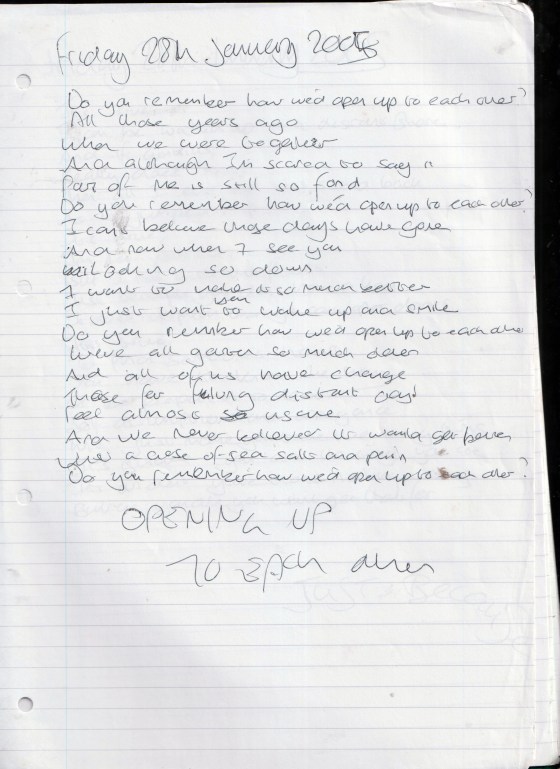 Friday 28th January 2005
Do you remember how we'd open up to each other?
All those years ago
When we were together
And although I'm scared to say it
Part of me is still so fond
Do you remember how we'd open up to each other?
I can't believe those days have gone
And now when I see you
Looking so down
I want to make it so much better
I just want you to wake up and smile
Do you remember how we'd open up to each other
We've all grown so much older
And all of us have change
Those far distant days
Feel almost so
And we never believed it would get
a case of sea salt and pain
Do you remember how we'd open up to each other?
OPENING UP
TO EACH other